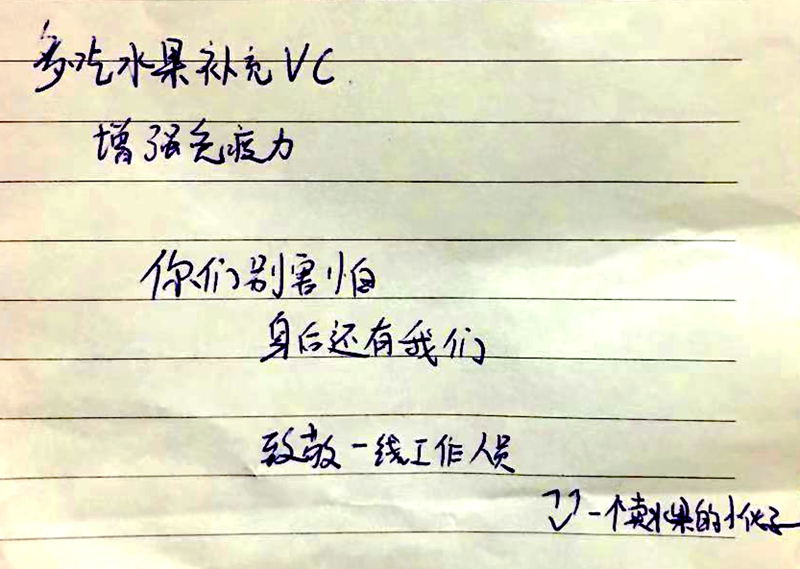 多吃水果补充VC
增强免疫力
你们别害怕
身后还有我们
致敬一线工作人员
一个卖水果的小伙子